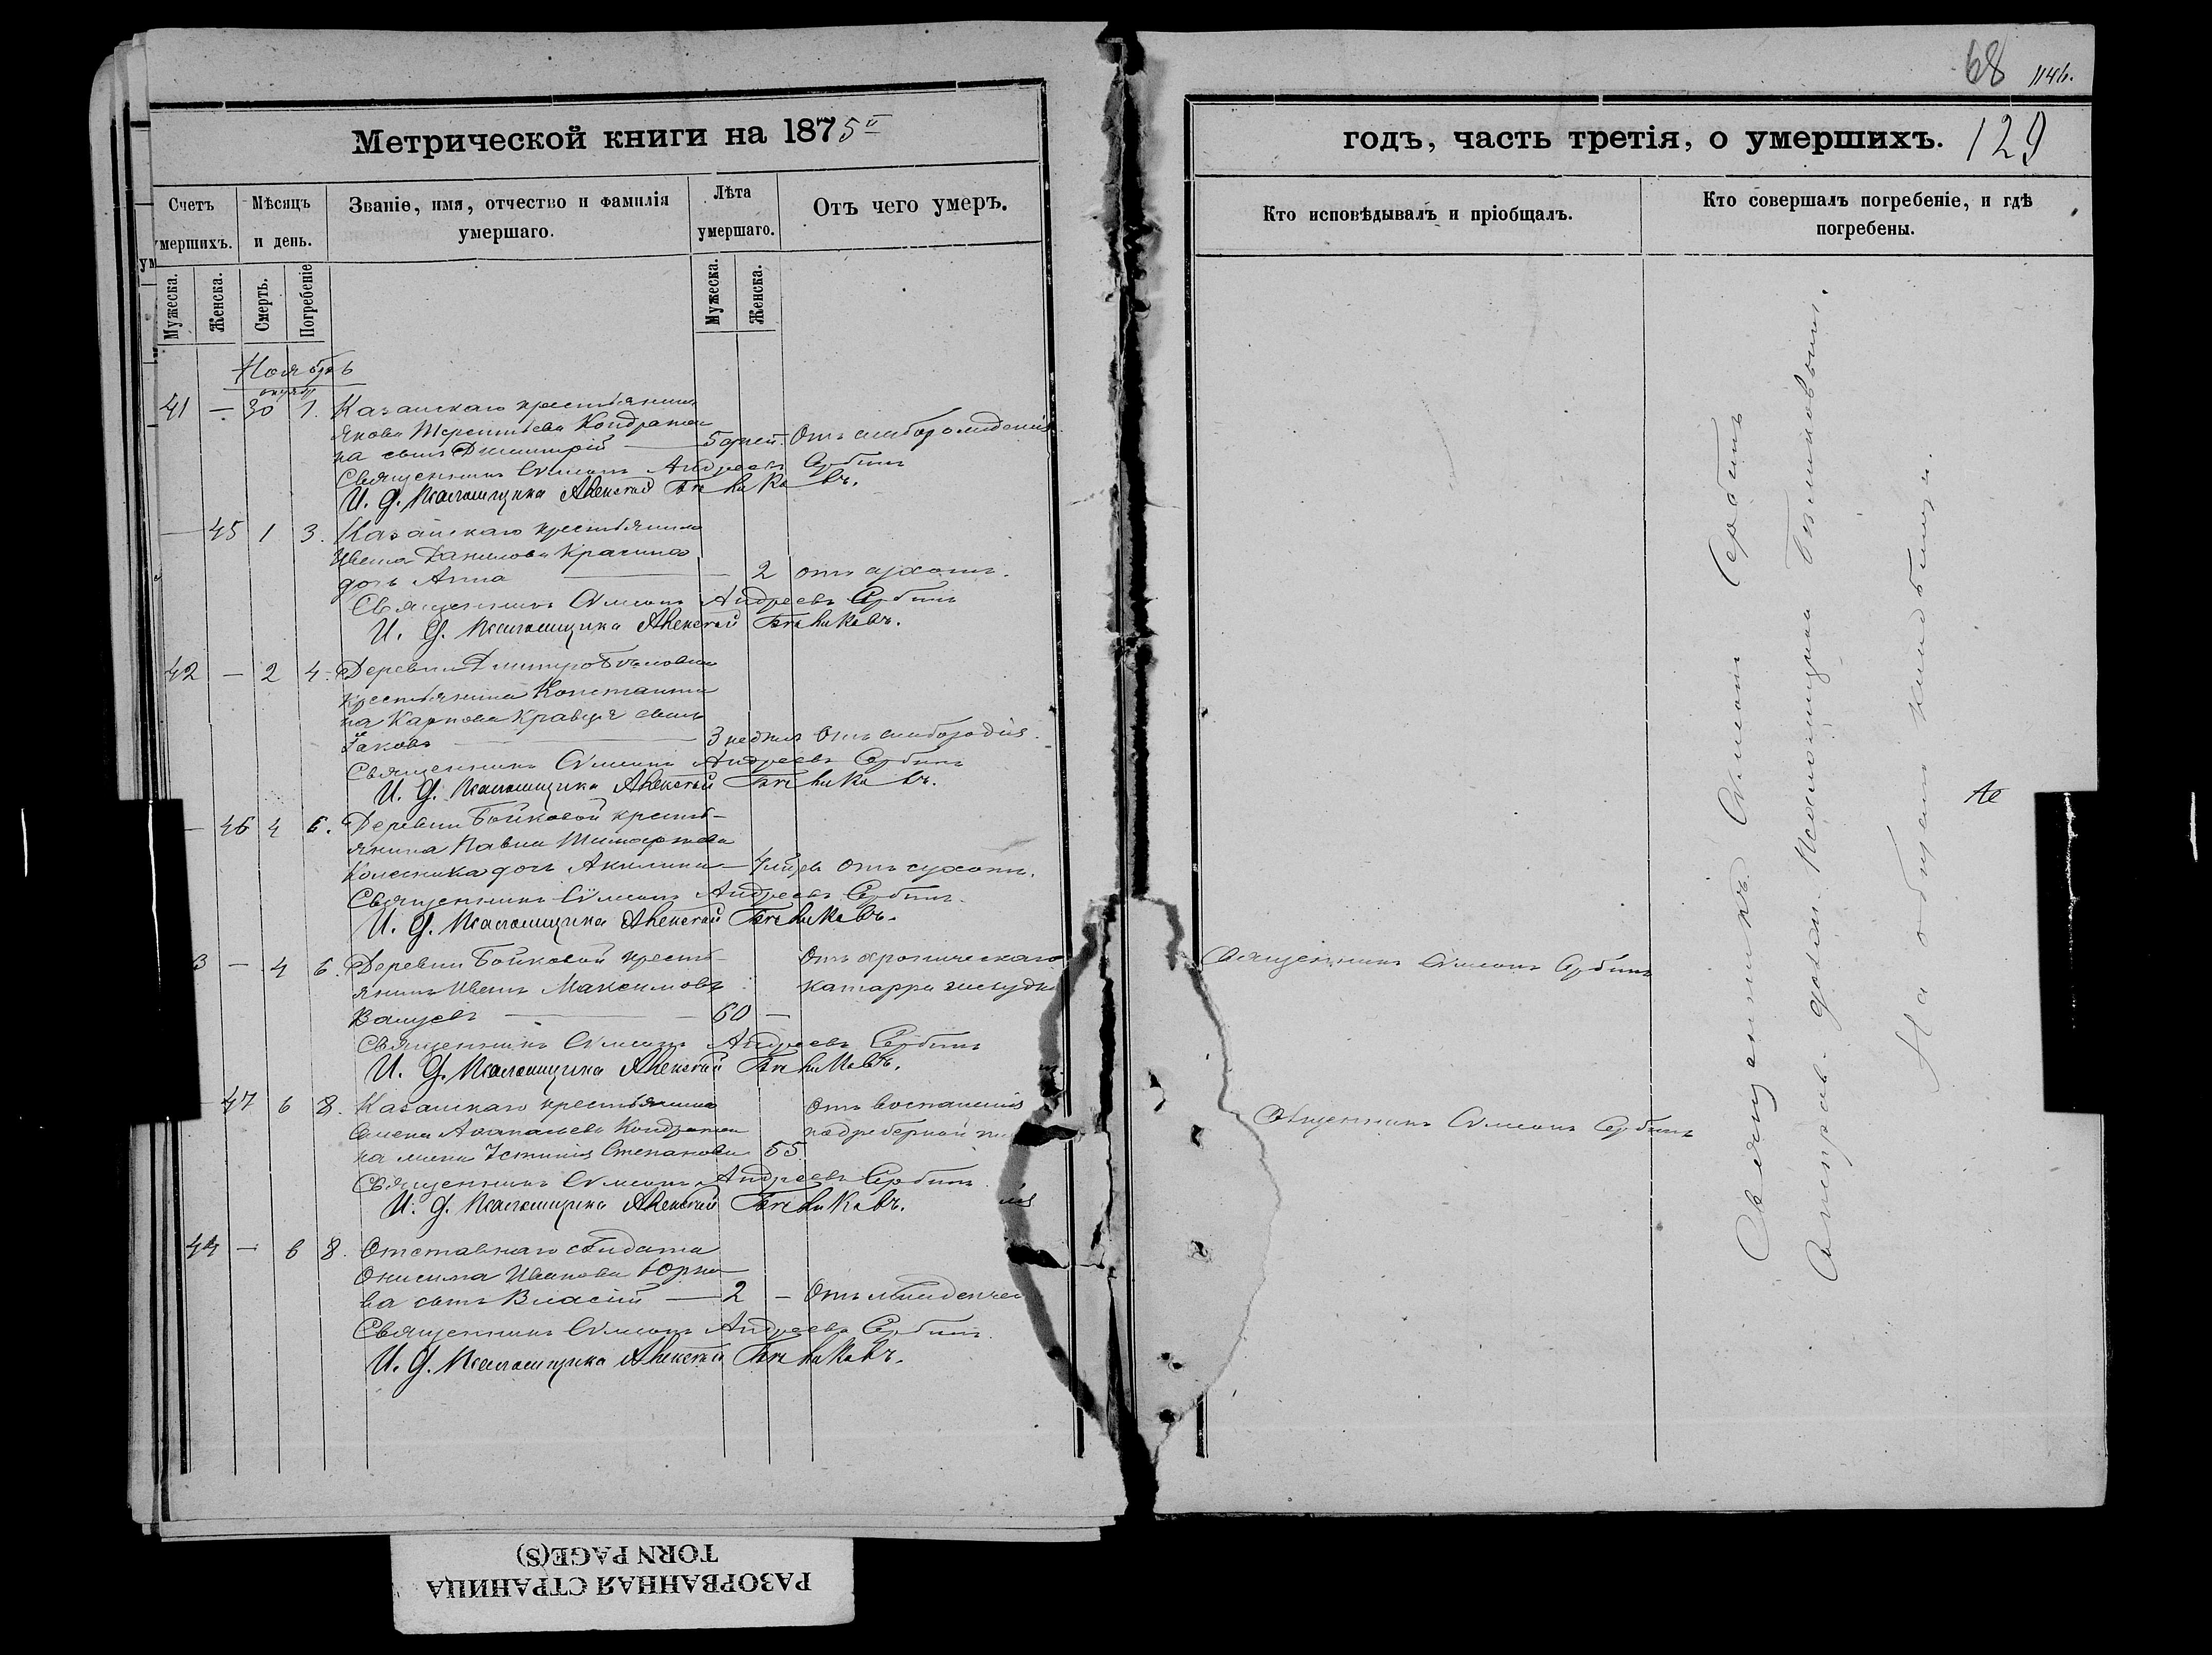 68 1146.
Метрической книги на 1875й
годъ, часть третія, о умершихъ. 129
Счетъ умершихъ.
Мѣсяцъ и день.
Званіе, имя, отчество и фамилія умершаго.
Лѣта умершаго.
Отъ чего умеръ.
Кто исповѣдывалъ и пріобщалъ.
Кто совершалъ погребеніе, и гдѣ погребены.
Мужеска. Женска. Смерть. Погребеніе Мужеска. Женска.
Ноябрь
октябр
41 — 30 1. Казанскаго крестьянина
Якова Терентьева Кондратен
ка сынъ Димитрій — 5 дней. Отъ слаборожденія
Священникъ Симеонъ Андреевъ Сербинъ
И. д. Псаломщика Алексѣй
— 45 1 3. Казанскаго крестьянина
Ивана Данилова
дочь Анна — 2 отъ сухотъ.
Священникъ Симеонъ Андреевъ Сербинъ
И. д. Псаломщика Алексѣй
42 — 2 4. Деревни
крестьянина Константи
на Карпова Кравця сынъ
Іаковъ — 3 недѣли Отъ слабородія.
Священникъ Симеонъ Андреевъ Сербинъ
И. д. Псаломщика Алексѣй
— 46 4 6. Деревни Бойковой кресть-
янина Павла
Колесника дочь Акилина — Отъ сухотъ.
Священникъ Симеонъ Андреевъ Сербинъ.
И. д. Псаломщика Алексѣй
3 — 4 6. Деревни Бойковой кресть- Отъ хроническаго
янинъ Иванъ Максимовъ катарра желудка
— 60 —
Священникъ Симеонъ Андреевъ Сербинъ
И. д. Псаломщика Алексѣй
Священникъ Симеонъ Сербинъ
47 6 8. Казанскаго крестьянина Отъ воспаленія
Семена Кондратен подреберной
ка жена Устинія Степанова 55.
Священникъ Симеонъ Андреевъ Сербинъ.
И. д. Псаломщика Алексѣй
Священникъ Симеонъ Сербинъ
44 — 6 8. Отставнаго солдата
Онисима Иванова
ва сынъ Власій — 2 — Отъ младенчес
Священникъ Симеонъ Андреевъ Сербинъ.
И. д. Псаломщика Алексѣй
Священникъ Симеонъ Сербинъ
Псаломщика
На общемъ кладбищѣ.
РАЗОРВАННАЯ СТРАНИЦА
TORN PAGE(S)